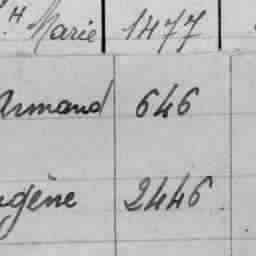 Marie 1477
Armand 646
ugène 2446